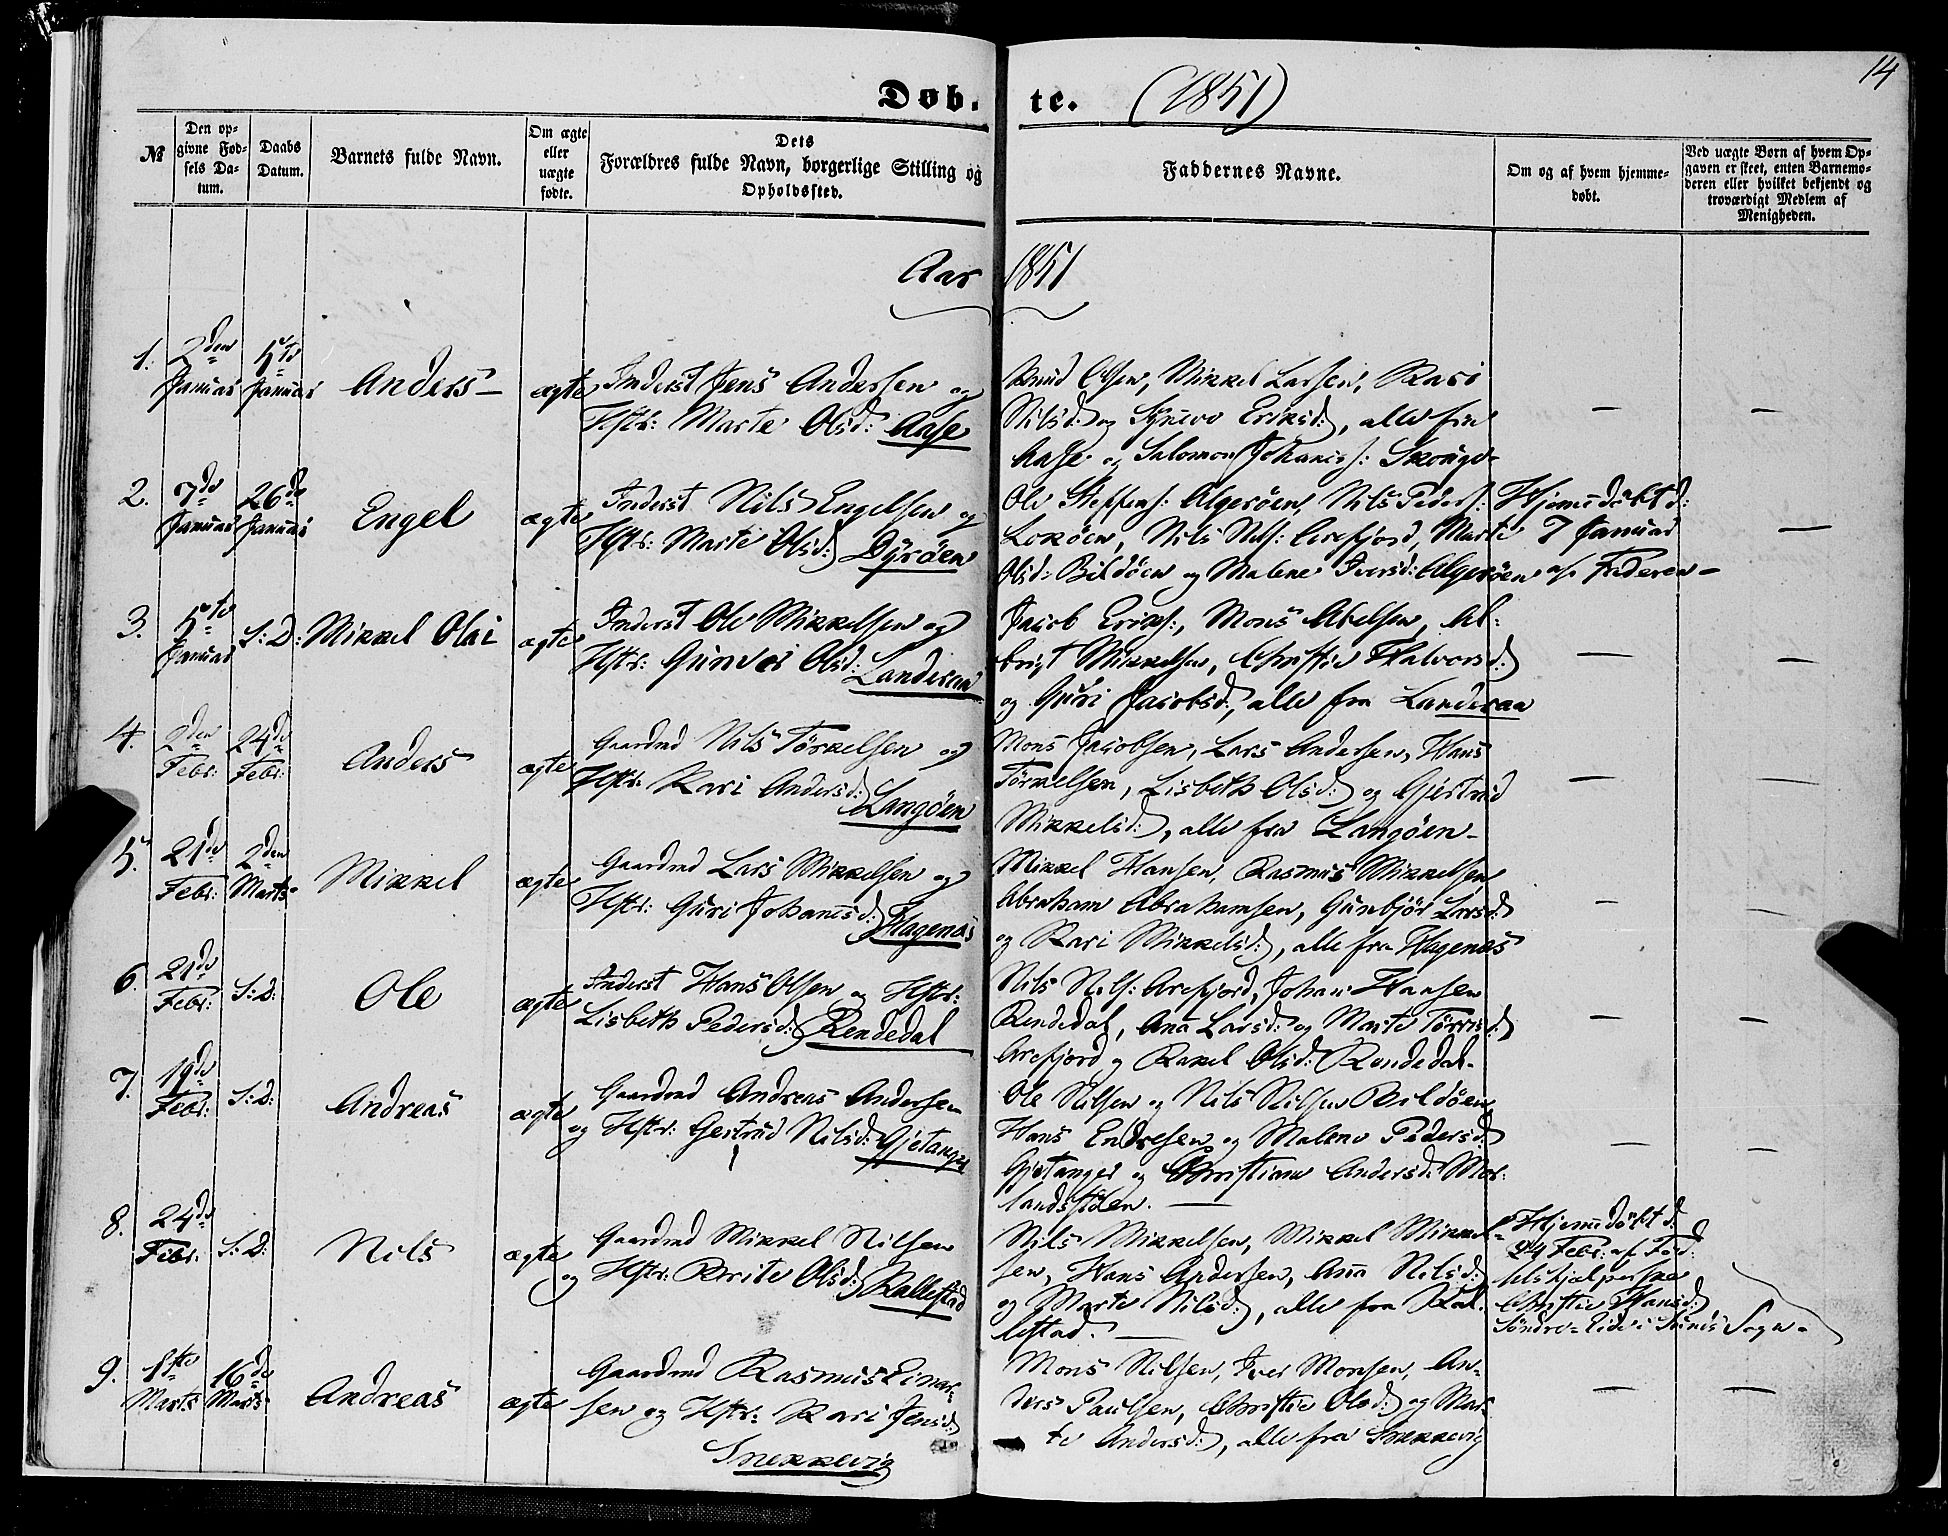 14
Døb- te. (1851)
№
Den opgivne Fødsels Datum.
Daabs Datum.
Barnets fulde Navn.
Om ægte eller uægte fødte.
Dets Forældres fulde Navn, borgerlige Stilling og Opholdssted.
Faddernes Navne.
Om og af hvem hjemmedøbt.
Ved uægte Børn af hvem Opgaven er skeet, enten Barnemoderen eller hvilket bekjendt og troværdigt Medlem af Menigheden.
Aar 1851
1. 2den Januar 5te Januar Anders – ægte
Inderst Jens Andersen og
Hstr: Marte Olsd: Aase
Knud Olsen, Mikkel Larsen, Kari
Nilsd: og Syneve Eriksd:, alle fra
Aase og Salomon Johaness: Skouge – — —
2. 7de Januar 26de Januar Engel ægte
Inderst Nils Engelsen og
Hstr: Marte Olsd: Dyrøen
Ole Steffens: Algerøen, Nils Peders:
Lokøen, Nils Nils: Arefjord, Marte
Olsd: Bildøen og Malene Iversd: Algerøen
Hjemmedøbt d:
7 Januar
af Faderen – —
3. 5te Januar S: D: Mikkel Olai ægte
Inderst Ole Mikkelsen og
Hstr: Gunvor Olsd: Landeraa
Jacob Eriks:, Mons Abelsen, Al-
brigt Mikkelsen, Christie Halvorsd:
og Guri Jacobsd:, alle fra Landeraa — —
4. 2den Febr: 24de Febr: Anders ægte
Gaardmd Nils Torkelsen og
Hstr: Kari Andersd: Langøen
Mons Jacobsen, Lars Andersen, Hans
Torkelsen, Lisbeth Olsd: og Gjertrud
Mikkelsd:, alle fra Langøen – — —
5. 21de Febr: 2den Marts Mikkel ægte
Gaardmd Lars Mikkelsen og
Hstr: Guri Johanisd: Hagenæs
Mikkel Hansen, Rasmus Mikkelsen
Abraham Abrahamsen, Gunbjør Larsd:
og Kari Mikkelsd:, alle fra Hagenæs — —
6. 21de Febr: S: D: Ole ægte
Inderst Hans Olsen og Hstr:
Lisbeth Pedersd: Rendedal
Nils Nils: Arefjord, Johan Hansen
Rendedal, Ana Larsd: og Marte
Arefjord og Rakel Olsd: Rendedal. — —
7. 19de Febr: S: D: Andreas ægte
Gaardmd Andreas Andersen
og Hstr: Gertrud Nilsd: Gjetanger
Ole Nilsen og Nils Nilsen Bildøen
Hans Endresen og Malene Pedersd:
Gjetanger og Christiane Andersd: Mor-
landstøen. — — —
8. 24de Febr: S: D: Nils ægte
Gaardmd Mikkel Nilsen
og Hstr: Brite Olsd: Kallestad
Nils Mikkelsen, Mikkel Mikkel-
sen, Hans Andersen, Ana Nilsd:
og Marte Nilsd:, alle fra Kal-
lestad. —
Hjemmedøbt d.
24 Febr: af Jord-
Christie Hansd:
Søndre-Lide i Sunds Sogn –
9. 1ste Marts 16de Marts Andreas ægte
Gaardmd Rasmus Einar-
sen og Hstr: Kari Jensd:
Snekkevig
Mons Nilsen, Iver Monsen, An-
ders Paulsen, Christie Olsd: og Mar-
te Andersd:, alle fra Snekkevig — —